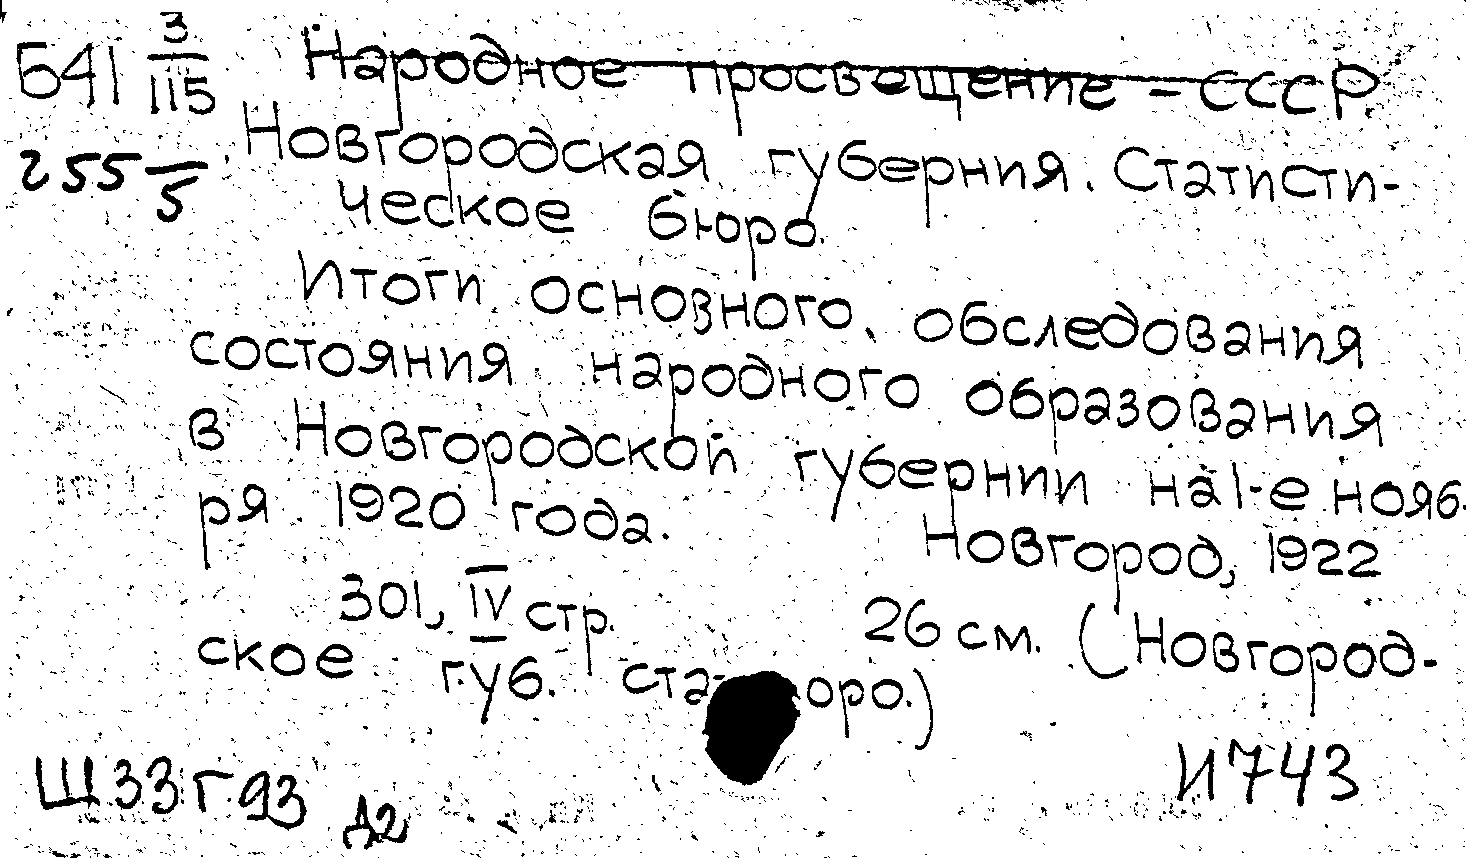 Б41 3/115 Народное просвещение – СССР.
255 – 5 Новгородская губерния. Статисти-
ческое бюро.
Итоги основного обследования
состояния народного образования
в Новгородской губернии на 1-е нояб.
ря 1920 года. Новгород, 1922
301, IV стр. 26 см. (Новгород-
ское губ. ста
Ш33г93 Д2 И743